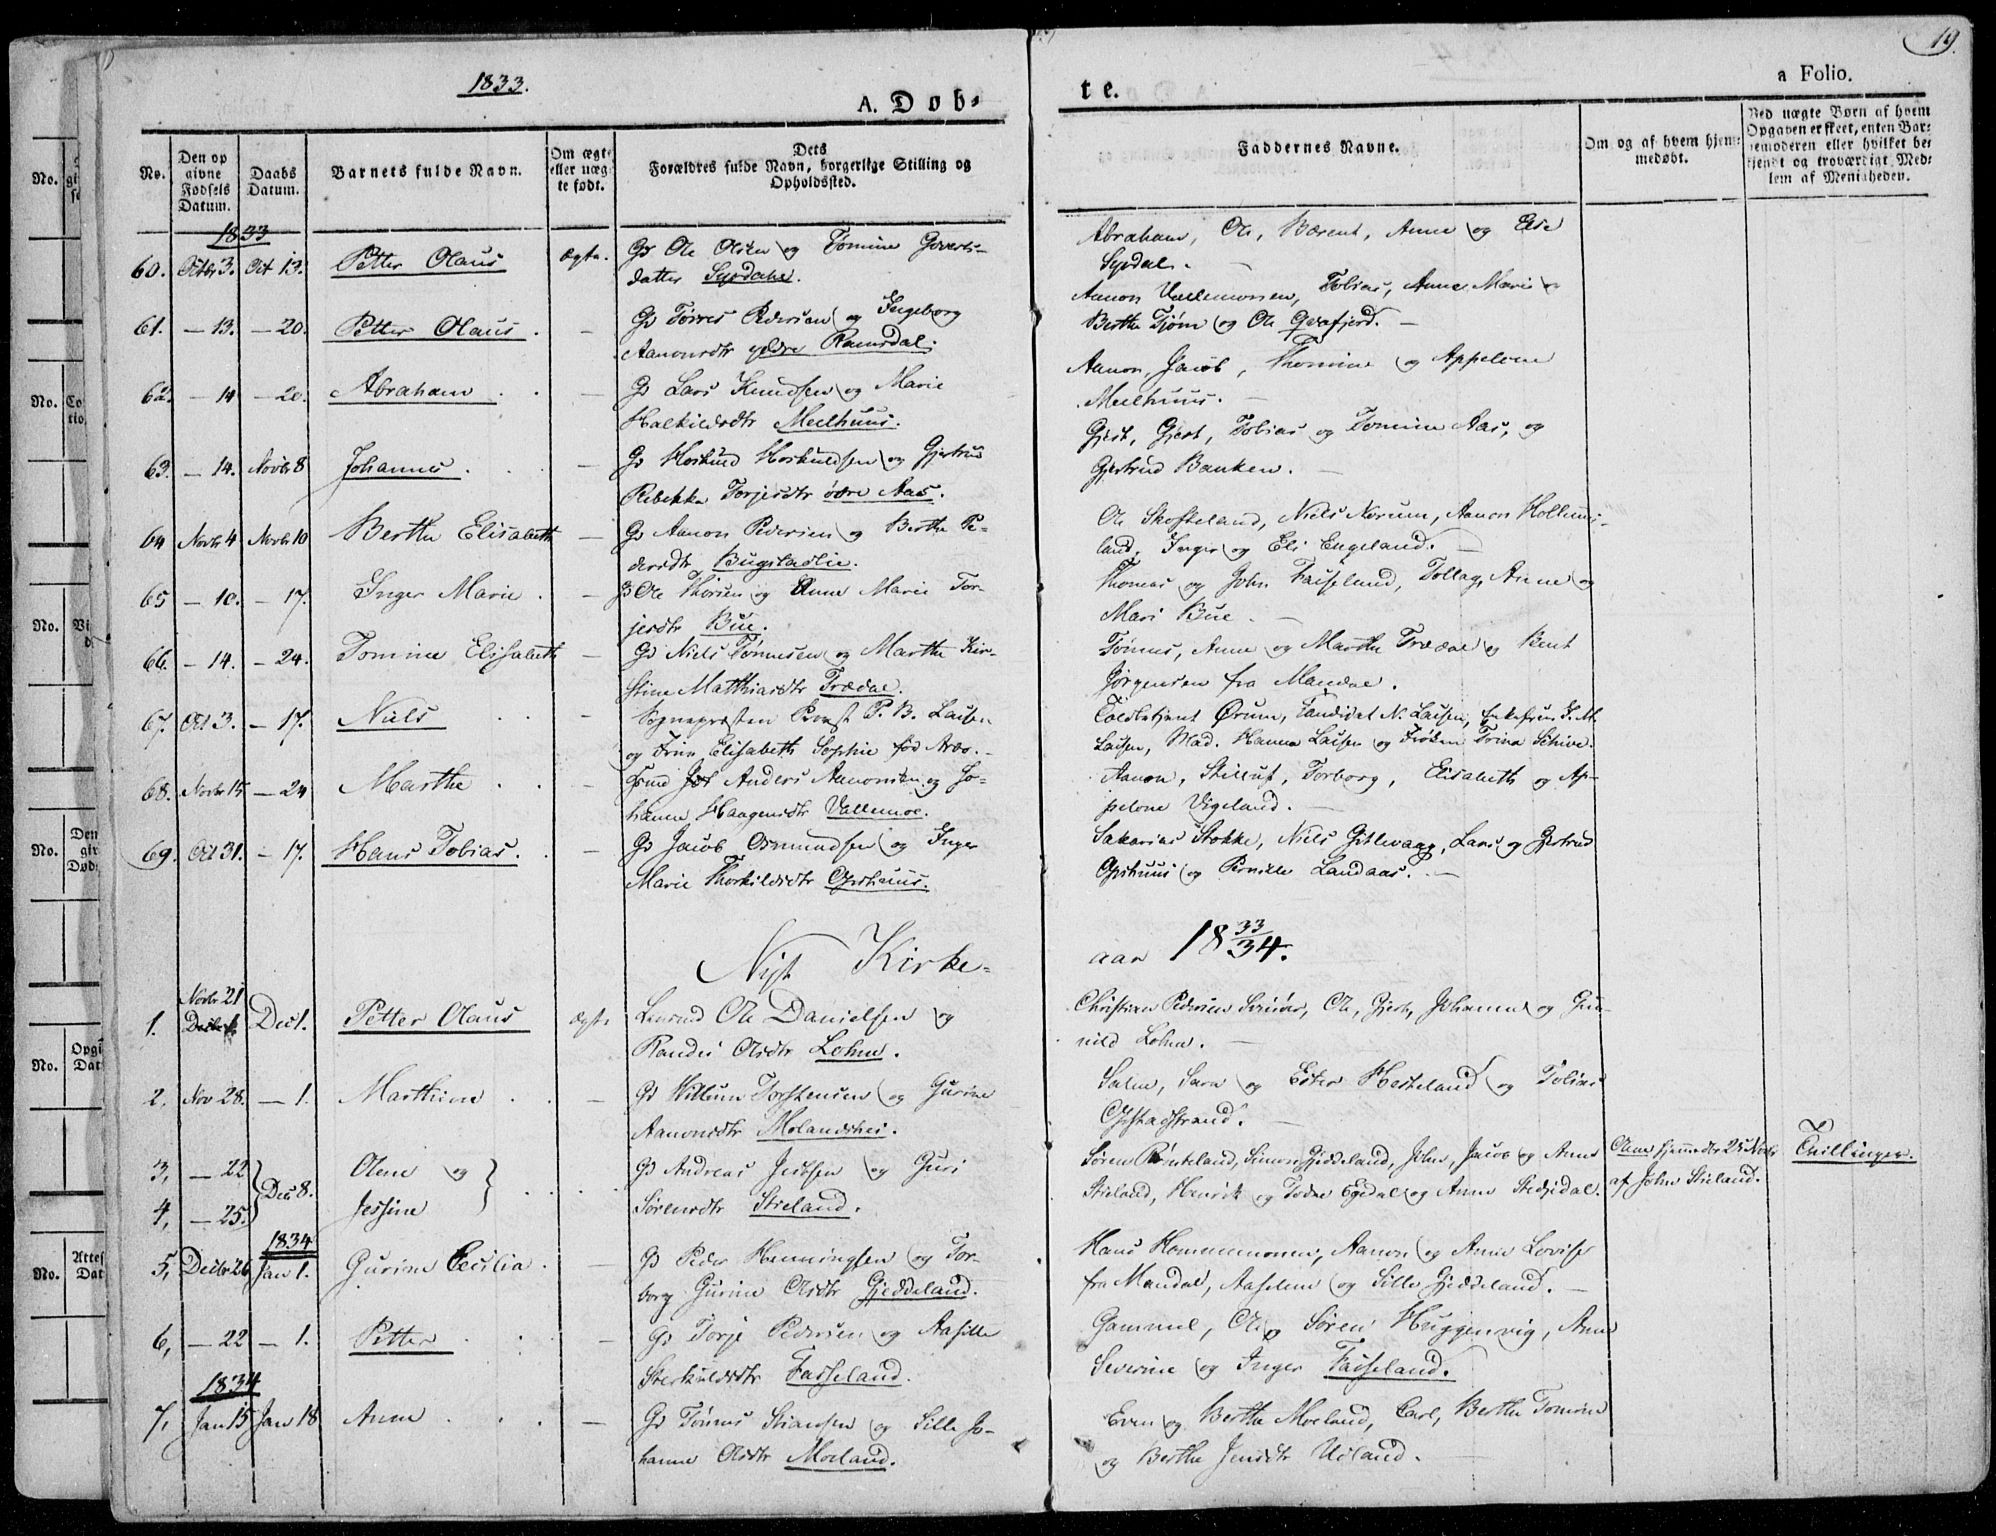 19.
1833.
A. Døb-
te.
a Folio.
No.
Den op
givne
Fødsels
Datum.
Daabs
Datum.
Barnets fulde Navn.
Om ægte
eller uæg-
te født.
Dets
Forældres fulde Navn, borgerlige Stilling og
Opholdssted.
Faddernes Navne.
Om og af hvem hjem-
medøbt.
Ved uægte Børn af hvem
Opgaven er skeet, enten Bar-
nemoderen eller hvilket be-
kjendt og troværdigt Med-
lem af Menigheden.
1833
60. Octbr 3. Oct 13. Petter Olaus ægte. Gd Ole Olsen og Tomine Goverts-
datter Syrdahl.
Abraham, Ole, Bærent, Anne og Else
Syrdal.
61. — 13. — 20. Petter Olaus. — Gd Tørres Pedersen og Ingeborg
Aanonsdtr ydre Ramsdal.
Aanon Vallemoen, Tobias, Anne Marie og
Berthe Tjøm og Ole Qvafjord. —
62. — 14 — 20. Abraham — Gd Lars Knudsen og Marie
Halkildsdtr Meelhuus.
Aanon, Jacob, Thomine og Appelone
Meelhuus. —
63. — 14. Novbr 8 Johannes. — Gd Hoskuld Hoskuldsen og Gjertrud
Rebekka Torjesdtr øvre Aas.
Gjert, Gjert, Tobias og Tomine Aas, og
Gjertrud Banken. —
64 Novbr 4 Novbr 10 Berthe Elisabeth — Gd Aanon Pedersen og Berthe Pe-
dersdtr Bugstadlie.
Ole Skofteland, Niels Norum, Aanon Hollums-
land, Inger og Eli Engeland. —
65 — 10. — 17. Inger Marie. — Ole Thorsen og Anne Marie Tor-
jesdtr Bue.
Thomas og John Faiseland, Tollag, Anne og
Mari Bue. —
66. — 14. — 24. Tomine Elisabeth — Gd Niels Tønnesen og Marthe Kir-
stine Matthiasdtr Trædal.
Tønnes, Anne og Marthe Trædal og Bent
Jørgensen fra Mandal.
67. Oct 3. — 17. Niels — Sognepræsten Provst P. B. Lassen
og Frue Elisabeth Sophie fød Arbo. —
Toldbetjent Ørum, Candidat N. Lassen, Enkefrue K. M.
Lassen, Mad. Hanna Lassen og Frøken Trina Schive.
68. Novbr 15 — 24 Marthe — Anders Aanonsen og Jo-
hanne Haagensdtr Vallemoe.
Aanon, Torborg, Elisabeth og Ap-
pelone Vigeland. —
69. Oct 31. — 17. Hans Tobias. — Gd Jacob Osmundsen og Inger
Marie Thorkildsdtr Opshuus.
Sakarias Stokke, Niels Gitlevaag, Lars og Gjertrud
Opshuus og Pernille Landaas. —
Nyt Kirke-
aar 18 33/34.
1. Novbr 21 Decbr 1 Dec 1. Petter Olaus ægte Ole Danielsen og
Randi Olsdtr Lohne.
Christian Pedersen Svinør, Ole, Gjert, Johanne og Gun-
nild Lohne. —
2. Nov 28. — 1. Marthine — Gd Willum Torstensen og Gurine
Aanonsdtr Molandshei.
Salve, Sara og Ester Hesteland og Tobias
Opstadstrand. —
3, — 22 Olene og
4, — 25. Dec 8. Jessine
Gd Andreas Jacobsen og Guri
Sørensdtr Stieland.
Søren Rønteland, Simon Gjeddeland, John, Jacob og Anne
Stieland, Henrik og Todne Egedal og Anne Stedjedal.
Olene hjemmedbt 25 Novbr
af John Stieland.
Tvillinger.
1834
5, Decbr 26 Jan 1. Gurine Cecilia. — Gd Peder Henningsen og Tor-
borg Gurine Olsdtr Gjeddeland.
Hans Hommemoen, Aanon og Anne Lovise
fra Mandal, Aaselene og Sille Gjeddeland. —
6, — 22 — 1. Petter — Gd Torje Pedersen og Aasille
Sterkuldsdtr Faiseland.
Gammel, Ole, Søren Huggenvig, Anne
Severine og Inger Faiseland.
1834
7, Jan 15 Jan 18 Anne — Gd Tønnes Stiansen og Sille Jo-
hanne Olsdtr Moeland.
Even og Berthe Moeland, Carl, Berthe Tomine
og Berthe Jensdtr Udland.